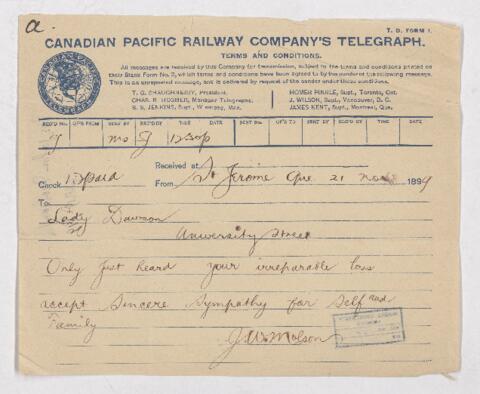 a.
T. D. FORM 1.
CANADIAN PACIFIC RAILWAY COMPANY'S TELEGRAPH.
TERMS AND CONDITIONS.
All messages are received by this Company for transmission, subject to the terms and conditions printed on
their Blank Form No. 2, which terms and conditions have been agreed to by the sender of the following message.
This is an unrepeated message, and is delivered by request of the sender under these conditions.
T. G. SHAUGHNESSY, President.
HOMER PINGLE, Supt., Toronto, Ont.
CHAS. R. HOSMER, Manager Telegraphs.
J. WILSON, Supt., Vancouver, B. C.
B. S. JENKINS, Supt., Winnipeg, Man.
JAMES KENT, Supt., Montreal, Que.
REC'D No. OP'S FROM SENT BY REC'D BY TIME DATE SENT No. OP'S TO SENT BY REC'D BY TIME
Mo J 1230p
Received at
Check 12 paid From St Jerome Que 21 Nov 1899
To
Lady Dawson
University Street
Only just heard your irreparable loss
accept sincere sympathy for self and
Family
J.W. Molson